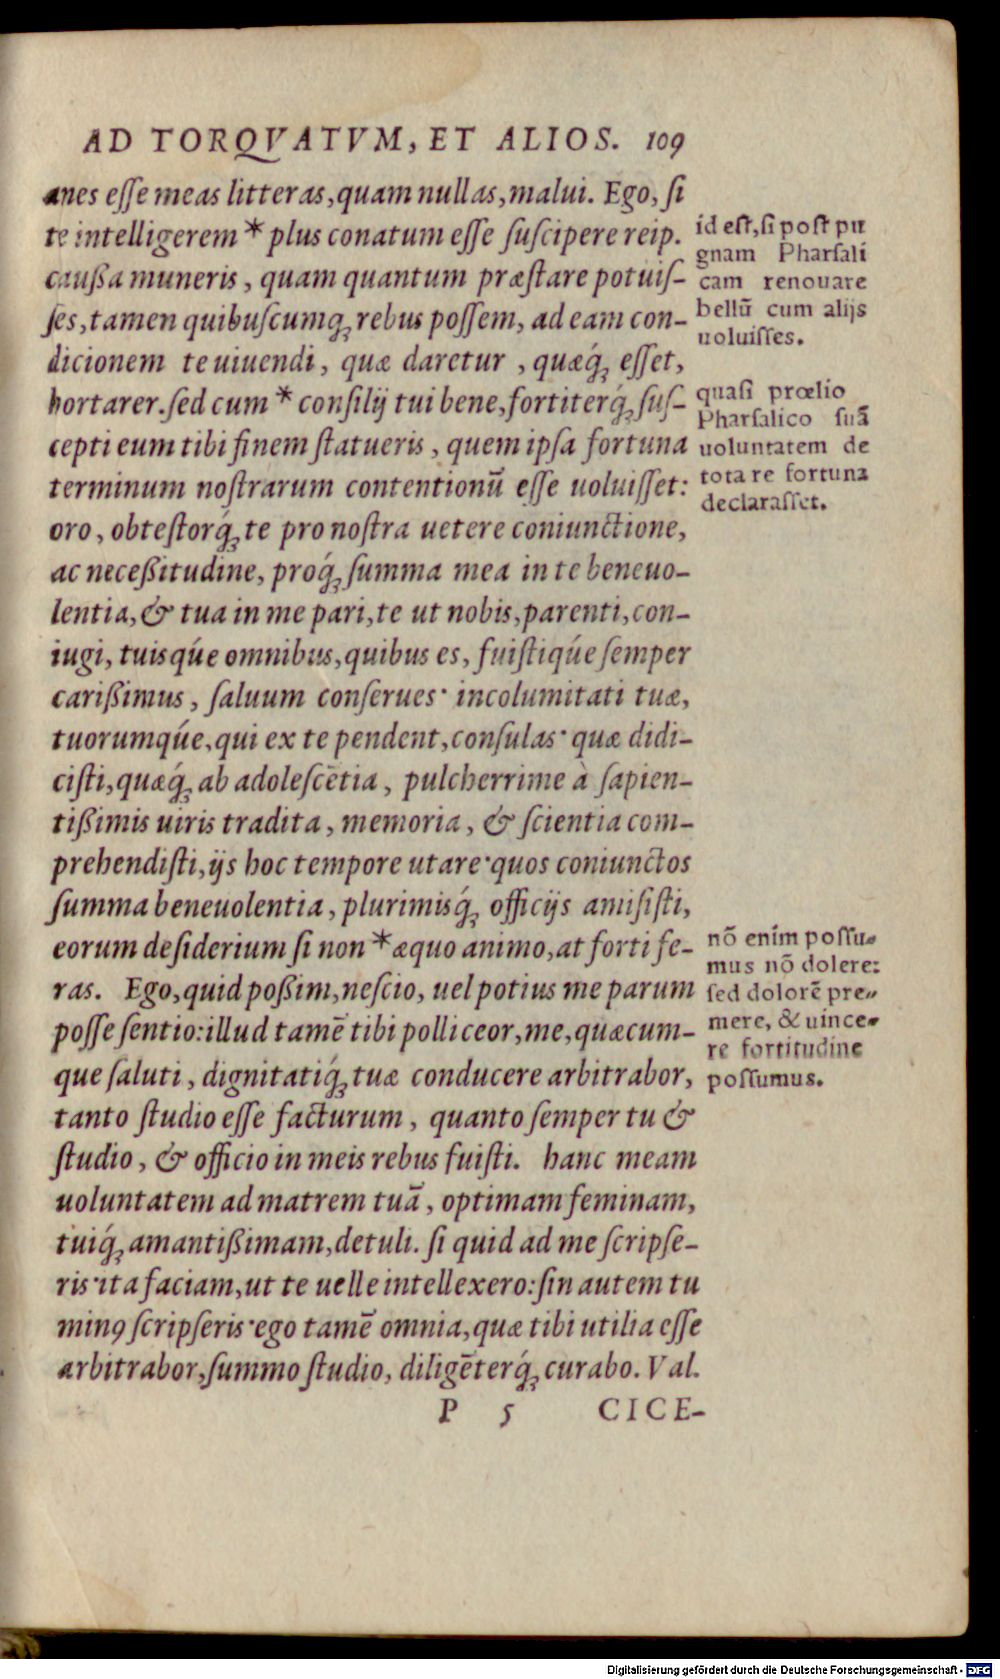 AD TORQVATVM, ET ALIOS. 109
anes eſſe meas litteras, quam nullas, malui. Ego, ſi
te intelligerem * plus conatum eſſe ſuſcipere reip.
caußa muneris, quam quantum præſtare potuiſ-
ſes, tamen quibuſcumq́ꝫ rebus poſſem, ad eam con-
dicionem te uiuendi, quæ daretur, quæq́ꝫ eſſet,
hortarer. ſed cum * conſilij tui bene, fortiterq́ꝫ ſuſ-
cepti eum tibi finem ſtatueris, quem ipſa fortuna
terminum noſtrarum contentionū eſſe uoluiſſet:
oro, obteſtorq́ꝫ te pro noſtra uetere coniunctione,
ac neceßitudine, proq́ꝫ ſumma mea in te beneuo-
lentia, & tua in me pari, te ut nobis, parenti, con-
iugi, tuisq́ue omnibus, quibus es, fuiſtiq́ue ſemper
carißimus, ſaluum conſerues· incolumitati tuæ,
tuorumq́ue, qui ex te pendent, conſulas· quæ didi-
ciſti, quæq́ꝫ ab adoleſcētia, pulcherrime à ſapien-
tißimis uiris tradita, memoria, & ſcientia com-
prehendiſti, ijs hoc tempore utare· quos coniunctos
ſumma beneuolentia, plurimisq́ꝫ officijs amiſiſti,
eorum deſiderium ſi non * æquo animo, at forti fe-
ras. Ego, quid poßim, neſcio, uel potius me parum
poſſe ſentio: illud tamē tibi polliceor, me, quæcum-
que ſaluti, dignitatiq́ꝫ tuæ conducere arbitrabor,
tanto ſtudio eſſe facturum, quanto ſemper tu &
ſtudio, & officio in meis rebus fuiſti. hanc meam
uoluntatem ad matrem tuā, optimam feminam,
tuiq́ꝫ amantißimam, detuli. ſi quid ad me ſcripſe-
ris· ita faciam, ut te uelle intellexero: ſin autem tu
minꝯ ſcripſeris· ego tamē omnia, quæ tibi utilia eſſe
arbitrabor, ſummo ſtudio, diligēterq́ꝫ curabo. Val.
P 5 CICE-
id eſt, ſi poſt pu
gnam Pharſali
cam renouare
bellū cum alijs
uoluiſſes.
quaſi prœlio
Pharſalico ſuā
uoluntatem de
tota re fortuna
declaraſſet.
nō enim poſſu-
mus nō dolere:
ſed dolorē pre-
mere, & uince-
re fortitudine
poſſumus.
Digitalisierung gefördert durch die Deutsche Forschungsgemeinschaft - DFG